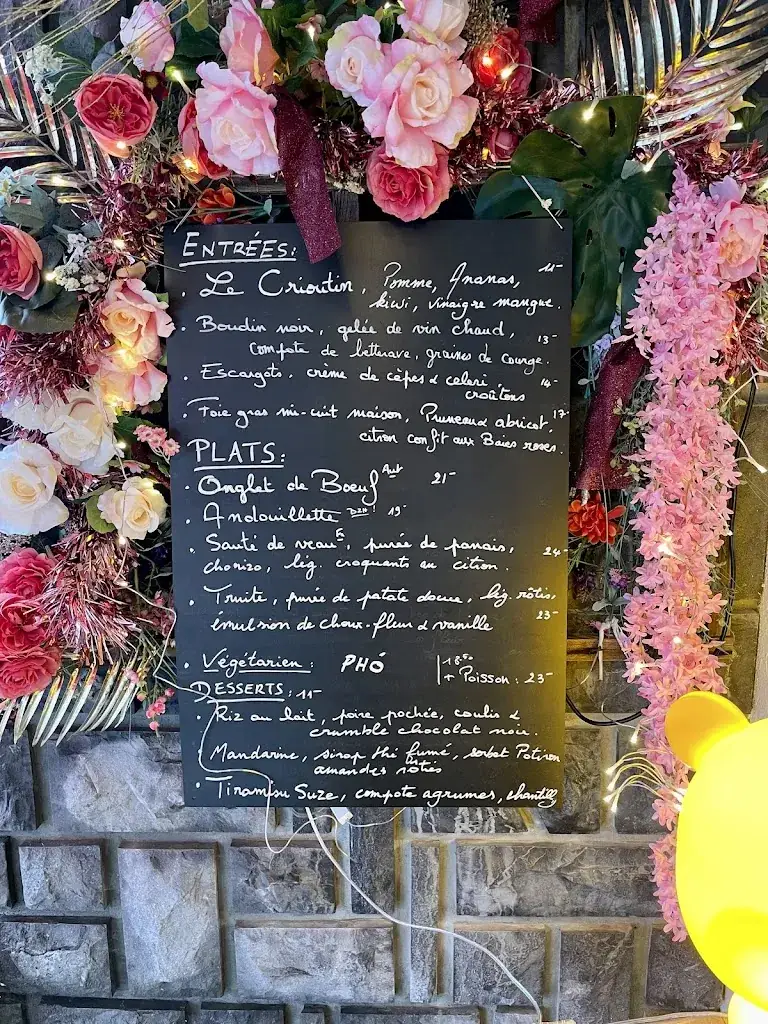 ENTRÉES:
. Le Crioutin, Pomme, Ananas, 11-
kiwi, vinaigre mangue.
. Boudin noir, gelée de vin chaud, 13-
compote de betterave, graines de courge.
. Escargots, crème de cèpes & celeri, 14-
croûtons
. Foie gras mi-cuit maison, Pruneaux abricot, 17-
citron confit aux Baies roses.
PLATS:
. Onglet de Boeuf 21-
. Andouillette 19-
. Sauté de veau, purée de panais, 24-
chorizo, lég. croquants au citron.
. Truite, purée de patate douce, lég. rôtis,
émulsion de choux-fleur & vanille 23-
. Végétarien: PHÓ 18.50
+ Poisson: 23-
DESSERTS: 11-
. Riz au lait, poire pochée, coulis &
crumble chocolat noir.
. Mandarine, sirop thé fumé, sorbet Potiron
amandes rôties
. Tiramisu Suze, compote agrumes, chantilly